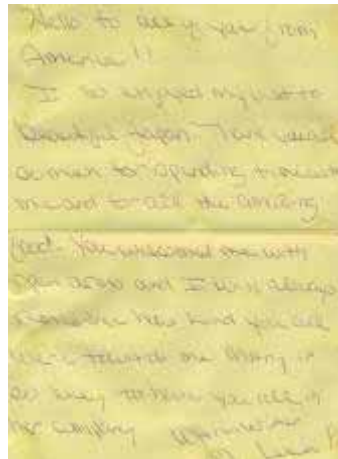 Hello to all of you from
America!!
I so enjoyed my visit to
beautiful Japan. Thank you all
so much for spending time with
me and to all the amazing
food. You welcomed me with
open arms and I will always
remember how kind you all
were towards me. is
so lucky to have you all in
her company